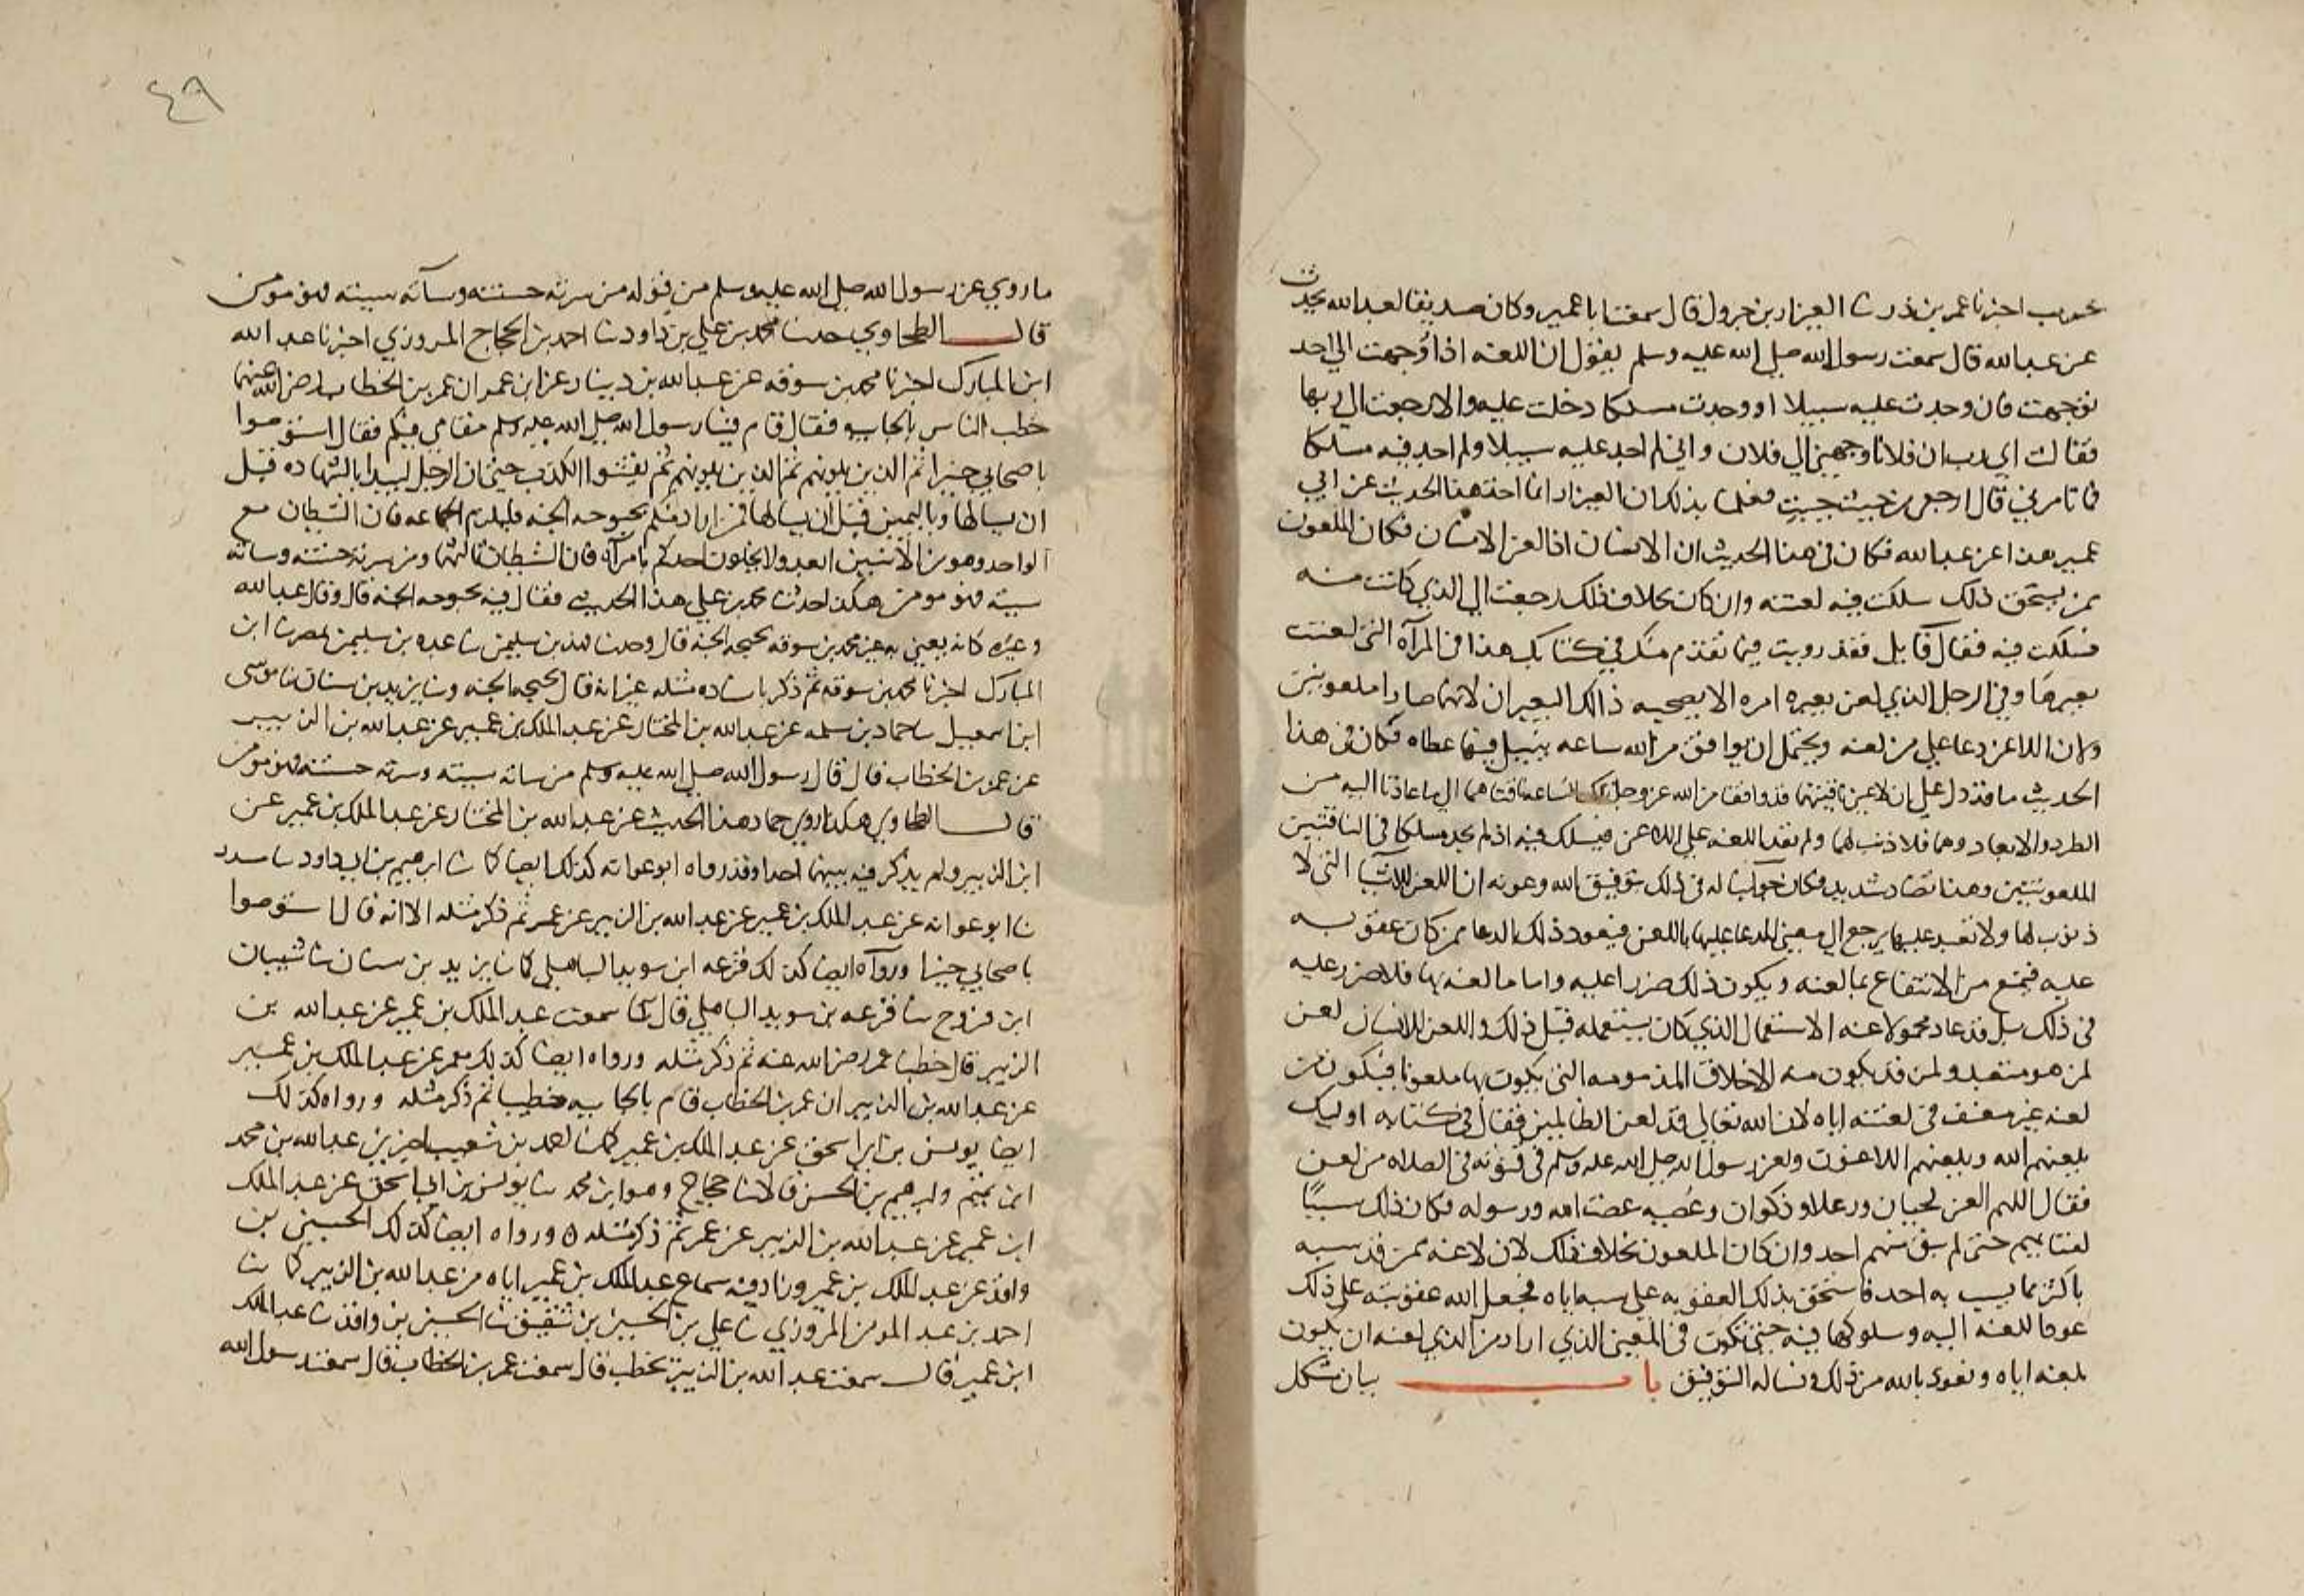 اخبرنا عمر بن ذر ثنا العيزار بن جرول قال سمعت ابا عمير وكان صديقا لعبد الله يحدث
عن عبد الله قال سمعت رسول الله صلى الله عليه وسلم يقول ان اللعنه اذا وجهت الى احد
توجهت فان وجدت عليه سبيلا او وجدت مسلكا دخلت عليه والا رجعت الى ربها
فقالت اي رب ان فلانا وجهني الى فلان واني لم اجد عليه سبيلا ولم اجد فيه مسلكا
فما تامرني قال ارجعي من حيث جيت فعلمنا بذلك ان العيزار انما اخذ هذا الحديث عن ابي
عمير هذا عن عبد الله فكان في هذا الحديث ان الانسان اذا لعن الانسان فكان الملعون
ممن يستحق ذلك سلكت فيه لعنته وان كان بخلاف ذلك رجعت الى الذي كانت منه
فسلكت فيه فقال قايل فقد رويت فيما تقدم منك في كتابك هذا في المرآه التي لعنت
بعيرها وفي الرجل الذي لعن بعيره امره الا يصحبه ذالك البعير ان لانهما صارا ملعونين
ولان اللاعن دعا على من لعنه ويحتمل ان يوافق من الله ساعه ينيل فيها عطاه فكان في هذا
الحديث ما قد دل على ان لاعني ناقتيهما قد وافقا من الله عز وجل تلك الساعه ناقتاهما الى ما عادتا اليه من
الطرد والابعاد وهما فلا ذنب لهما ولم تعد اللعنه على اللاعن فيسلك فيه اذ لم يجد مسلكا في الناقتين
الملعونتين وهذا تضاد شديد فكان جوابنا له في ذلك بتوفيق الله وعونه ان اللعن للاشيا التي لا
ذنوب لها ولا تعبد عليها يرجع الى معنى الدعا عليها باللعن فيعود ذلك الدعا ممن كان عقوبه
عليه فيمنع من الانتفاع بما لعنه ويكون ذلك ضررا عليه واما ما لعنه بها فلا ضرر عليه
في ذلك بل قد عاد محمولا عنه الاستعمال الذي كان يستعمله قبل ذلك واللعن للانسان لعن
لمن هو متعبد ولمن قد يكون منه الاخلاق المذمومه التي يكون بها ملعونا فيكون من
لعنه غير معنف في لعنته اياه لان الله تعالى قد لعن الظالمين فقال في كتابه اوليك
يلعنهم الله ويلعنهم اللاعنون ولعن رسول الله صلى الله عليه وسلم في قنوته في الصلاه من لعن
فقال اللهم العن لحيان ورعلا وذكوان وعصيه عصت الله ورسوله فكان ذلك سببًا
لفنايهم حتى لم يبق منهم احد وان كان الملعون بخلاف ذلك لان لاعنه ممن قد سبه
باكثر مما يسب به احد فاستحق بذلك العقوبه على سبه اياه فجعل الله عقوبته على ذلك
عود اللعنه اليه وسلوكها فيه حتى تكون في المعنى الذي اراد من الذي لعنه ان يكون
بلعنه اياه ونعوذ بالله من ذلك ونساله التوفيق باب بيان مشكل
٤٩
ما روي عن رسول الله صلى الله عليه وسلم من قوله من سرته حسنته وسآته سيئته فهو مومن
قال الطحاوي حدثنا محمد بن علي بن داود ثنا احمد بن الحجاج المروزي اخبرنا عبد الله
ابن المبارك اخبرنا محمد بن سوقه عن عبد الله بن دينار عن ابن عمر ان عمر بن الخطاب رضي الله عنهما
خطب الناس بالجابيه فقال قام فينا رسول الله صلى الله عليه وسلم مقامي فيكم فقال استوصوا
باصحابي خيرا ثم الذين يلونهم ثم الذين يلونهم ثم يفشوا الكذب حتى ان الرجل ليبدا بالشهاده قبل
ان يسالها وباليمين قبل ان يسالها فمن اراد منكم بحبوحه الجنه فليلزم الجماعه فان الشيطان مع
الواحد وهو من الاثنين ابعد ولا يخلون احدكم بامرآه فان الشيطان ثالثهما ومن سرته حسنته وساته
سيته فهو مومن هكذا حدثنا محمد بن علي هذا الحديث فقال فيه بحبوحه الجنه قال وقال عبد الله
وغيره كانه يعني به غير محمد بن سوقه بحبحه الجنه قال وحدثنا فهد بن سليمن ثنا عبده بن سليمن بمصر ثنا ابن
المبارك اخبرنا محمد بن سوقه ثم ذكر باسناده مثله غير انه قال بحبحه الجنه وثنا يزيد بن سنان ثنا موسى
ابن اسمعيل ثنا حماد بن سلمه عن عبد الله بن المختار عن عبد الملك بن عمير عن عبد الله بن الزبير
عن عمر بن الخطاب قال قال رسول الله صلى الله عليه وسلم من ساته سيته وسرته حسنته فهو مومن
قال الطحاوي هكذا روى حماد هذا الحديث عن عبد الله بن المختار عن عبد الملك بن عمير عن
ابن الزبير ولم يذكر فيه بينهما احدا وقد رواه ابو عوانه كذلك ايضا كما ثنا ابرهيم بن ابي داود ثنا مسدد
ثنا ابو عوانه عن عبد الملك بن عمير عن عبد الله بن الزبير عن عمر ثم ذكر مثله الا انه قال استوصوا
باصحابي خيرا ورواه ايضا كذلك قزعه ابن سويد الباهلي كما ثنا يزيد بن سنان ثنا شيبان
ابن فروخ ثنا قزعه بن سويد الباهلي قال سمعت عبد الملك بن عمير عن عبد الله بن
الزبير قال خطبنا عمر رضي الله عنه ثم ذكر مثله ورواه ايضا كذلك معمر عن عبد الملك بن عمير
عن عبد الله بن الزبير ان عمر بن الخطاب قام بالجابيه خطيبا ثم ذكر مثله ورواه كذلك
ايضا يونس بن ابي اسحق عن عبد الملك بن عمير كما ثنا احمد بن شعيب اخبرني عبد الله بن محمد
ابن تميم وابرهيم بن الحسن قالا ثنا حجاج وهو ابن محمد ثنا يونس بن ابي اسحق عن عبد الملك
ابن عمير عن عبد الله بن الزبير عن عمر ثم ذكر مثله ٥ ورواه ايضا كذلك الحسين بن
واقد عن عبد الملك بن عمير وزاد فيه سماع عبد الملك بن عمير اياه من عبد الله بن الزبير كما ثنا
احمد بن عبد المومن المروزي ثنا علي بن الحسن بن شقيق ثنا الحسين بن واقد ثنا عبد الملك
ابن عمير قال سمعت عبد الله بن الزبير يخطب قال سمعت عمر بن الخطاب قال سمعت رسول الله